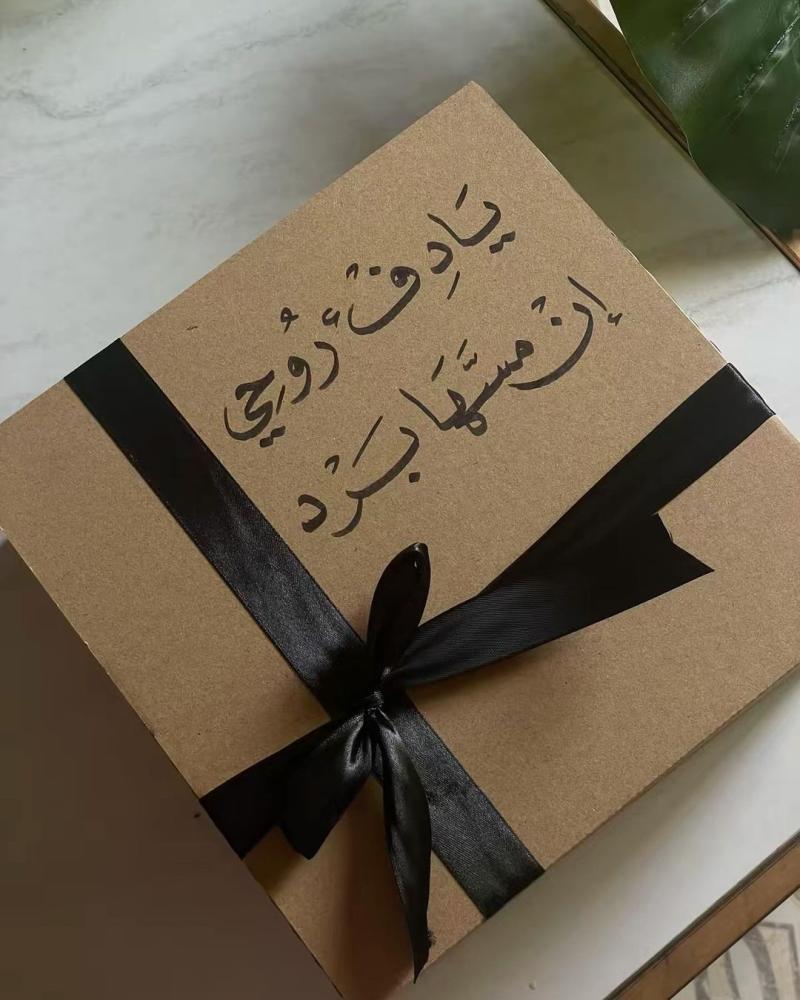 يَادِفْءَ رُوحِي
إنْ مسَّهَا بَرْد